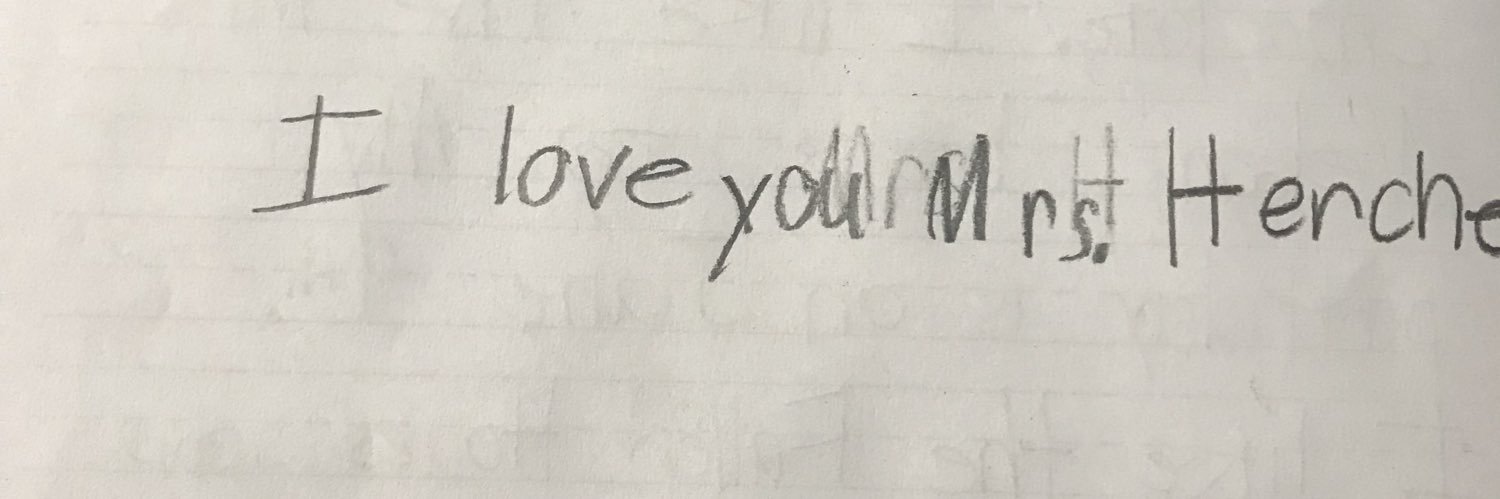 I love you Mrs. Henche